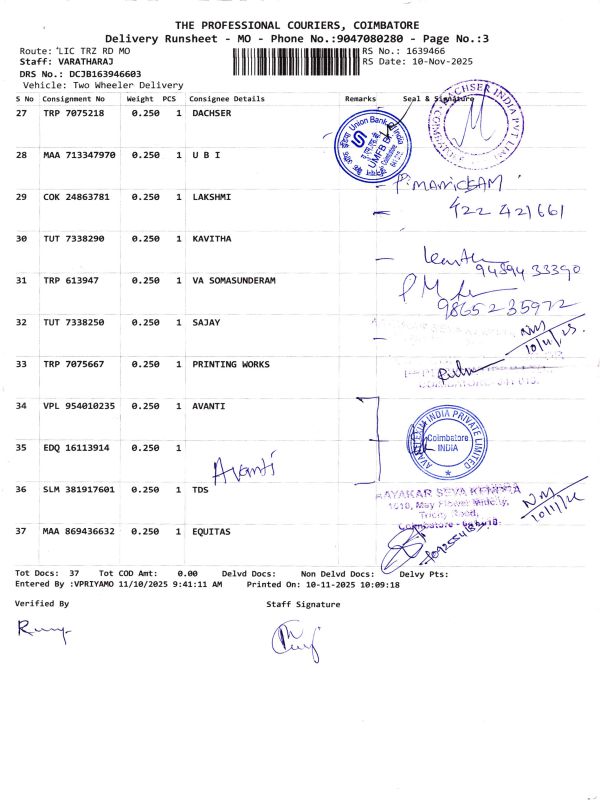 THE PROFESSIONAL COURIERS, COIMBATORE
Delivery Runsheet - MO - Phone No.:9047080280 - Page No.:3
Route: 'LIC TRZ RD MO
RS No.: 1639466
Staff: VARATHARAJ
RS Date: 10-Nov-2025
DRS No.: DCJB163946603
Vehicle: Two Wheeler Delivery
S No Consignment No Weight PCS Consignee Details Remarks Seal & Signature
27 TRP 7075218 0.250 1 DACHSER
DACHSER INDIA PVT
Union Bank of India
28 MAA 713347970 0.250 1 U B I
P. MANICKAM
29 COK 24863781 0.250 1 LAKSHMI
422 421661
30 TUT 7338290 0.250 1 KAVITHA
94894 33390
31 TRP 613947 0.250 1 VA SOMASUNDERAM
98652 35972
32 TUT 7338250 0.250 1 SAJAY
33 TRP 7075667 0.250 1 PRINTING WORKS
34 VPL 954010235 0.250 1 AVANTI
INDIA PRIVATE LIMITED
Coimbatore
INDIA
35 EDQ 16113914 0.250 1
Avanti
36 SLM 381917601 0.250 1 TDS
AAYAKAR SEVA KENDRA
1510, May Flower
Road,
Coimbatore
37 MAA 869436632 0.250 1 EQUITAS
Tot Docs: 37 Tot COD Amt: 0.00 Delvd Docs: Non Delvd Docs: Delvy Pts:
Entered By :VPRIYAMO 11/10/2025 9:41:11 AM Printed On: 10-11-2025 10:09:18
Verified By Staff Signature